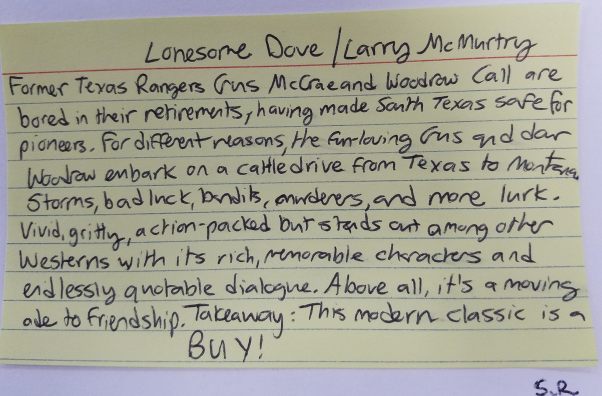 Lonesome Dove / Larry McMurtry
Former Texas Rangers Gus McCrae and Woodrow Call are
bored in their retirements, having made South Texas safe for
pioneers. For different reasons, the fun-loving Gus and dour
Woodrow embark on a cattle drive from Texas to Montana.
Storms, bad luck, bandits, murderers, and more lurk.
Vivid, gritty, action-packed but stands out among other
Westerns with its rich, memorable characters and
endlessly quotable dialogue. Above all, it's a moving
ode to friendship. Takeaway: This modern classic is a
BUY!
S.R.